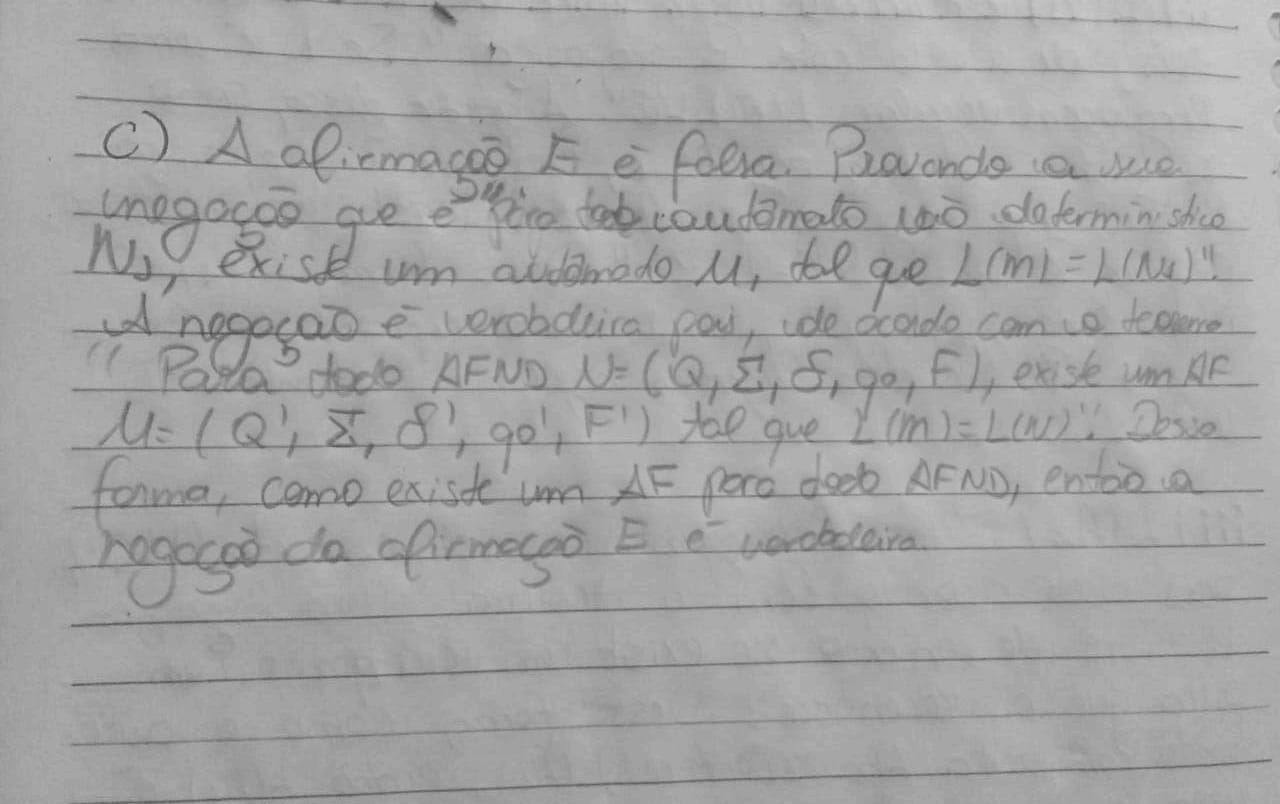 C) A afirmação E é falsa. Provando a sua
negação que é "Para todo autômato não determinístico
N₁, existe um autômado M, tal que L(M) = L(N₁)".
A negação é verdadeira pois, de acordo com o teorema
"Para todo AFND N = (Q, Σ, δ, q0, F), existe um AF
M = (Q', Σ, δ', q0', F') tal que L(M) = L(N)". Dessa
forma, como existe um AF para todo AFND, então a
negação da afirmação E é verdadeira.